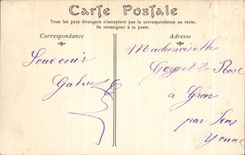 Carte Postale
Tous les pays étrangers n'acceptent pas la correspondance au recto.
Se renseigner à la poste.
Correspondance
Adresse
Souvenir
Mademoiselle
Rose
à Gron
par Sens
Yonne